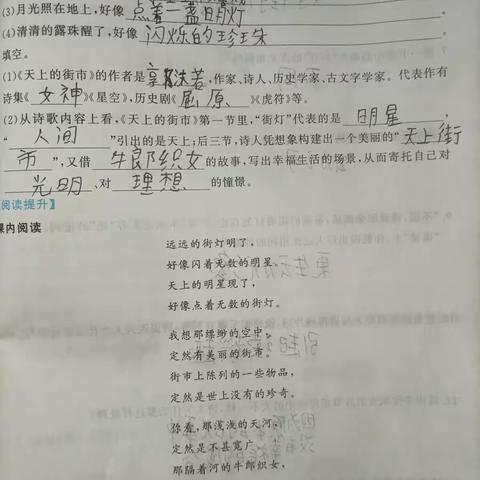 (3)月光照在地上,好像 点着一盏明灯 。
(4)清清的露珠醒了,好像 闪烁的珍珠 。
填空。
(1)《天上的街市》的作者是 郭沫若 ,作家、诗人、历史学家、古文字学家。代表作有
诗集《 女神 》《星空》,历史剧《 屈原 》《虎符》等。
(2)从诗歌内容上看,《天上的街市》第一节里,“街灯”代表的是 明星 ,
“ 人间 ”引出的是天上;后三节,诗人凭想象构建出一个美丽的“ 天上街
市 ”,又借 牛郎织女 的故事,写出幸福生活的场景,从而寄托自己对
光明 、对 理想 的憧憬。
阅读提升】
课内阅读
远远的街灯明了,
好像闪着无数的明星。
天上的明星现了,
好像点着无数的街灯。
我想那缥缈的空中,
定然有美丽的街市。
街市上陈列的一些物品,
定然是世上没有的珍奇。
你看,那浅浅的天河,
定然是不甚宽广。
那隔着河的牛郎织女,